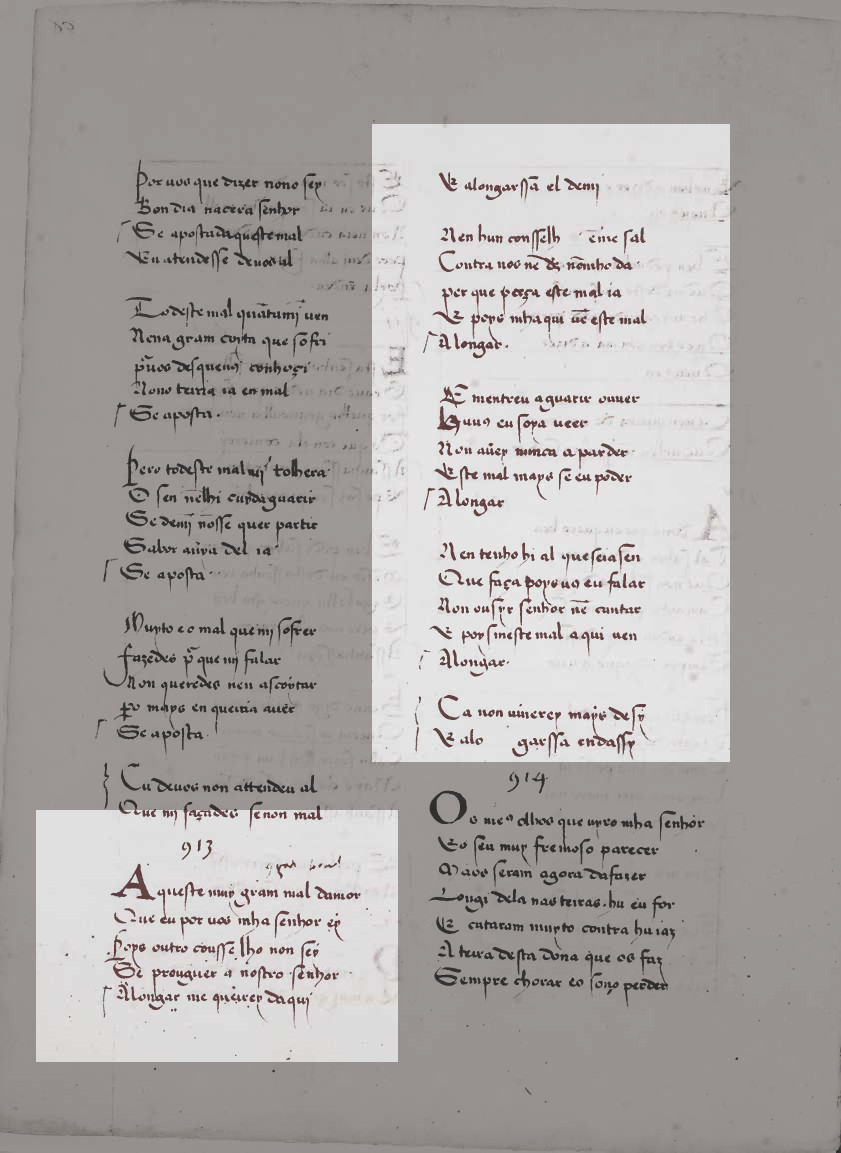 Por uos que dizer nono sey
Bon dia nacera senhor
Se aposta daqueste mal
Eu atendesse deuos al
To deste mal quãtami uen
Nena gram coyta que sofri
p̃uos desque uꝯ conhoçi
Nono terria ia en mal
Se aposta.
Pero todeste mal mi tolhera
O sen nẽlhi cuydaguarir
Se demi nõsse quer partir
Sabor auya del ia
Se aposta
Muyto e o mal que mj sofrer
fazedes p̃ que mj falar
Non queredes nen ascoytar
ꝑo mays en queiria auer
Se aposta
Eu deuos non attendeu al
Que mj façades senon mal
913
Aqueste muy gram mal damor
Que eu por uos mha senhor ey
Poys outro cousselho non sey
Se prouguer a nostro senhor
Alongar me queirey daqui
E alongarssã el demj
Nen hun consselh ẽme sal
Contra uos nẽ ds nõmho da
per que perça este mal ia
E poys mhaqui uẽ este mal
Alongar.
E mentreu aguarir ouuer
Hu uꝯ eu soya ueer
Non auerey nunca a parder
Este mal mays se eu poder
Alongar
Nen tenho hi al que seia sen
Que faça poys uo eu falar
Non ousyr senhor nẽ cuntar
E poys meste mal aqui uen
Alongar.
Ca non uiuerey mays de sy
E alo garssa endassy
914
Os meꝯ olhos que uyro mha senhor
Eo seu muy fremoso parecer
Maos seram agora dafazer
Longi dela nas teiras. hu eu for
E cataram muyto contra hu iaz
A teira desta dona que os faz
Sempre chorar eo sono perder